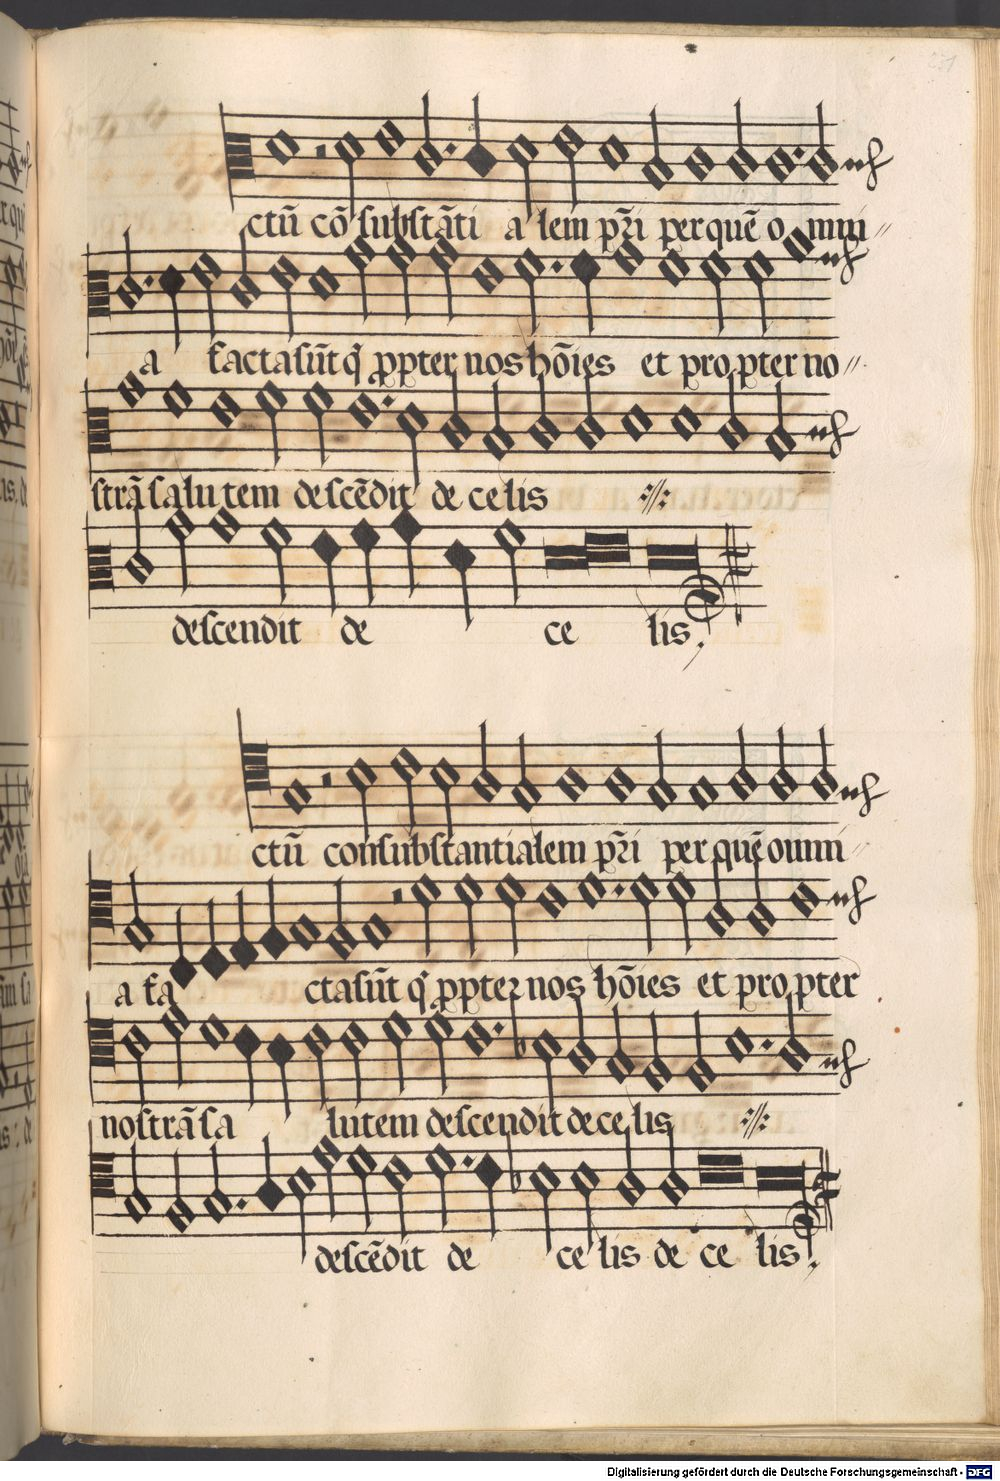 ctū cō substāti a lem pr̄i per quē o mni
a facta sūt q̄ ꝓpter nos hōies et propter no
strā salutem descēdit de celis
descendit de ce lis
ctū consubstantialem pr̄i per quē omni
a fa cta sūt q̄ ꝓpter nos hōies et propter
nostrā sa lutem descendit de ce lis
descēdit de ce lis de ce lis
Digitalisierung gefördert durch die Deutsche Forschungsgemeinschaft - DFG